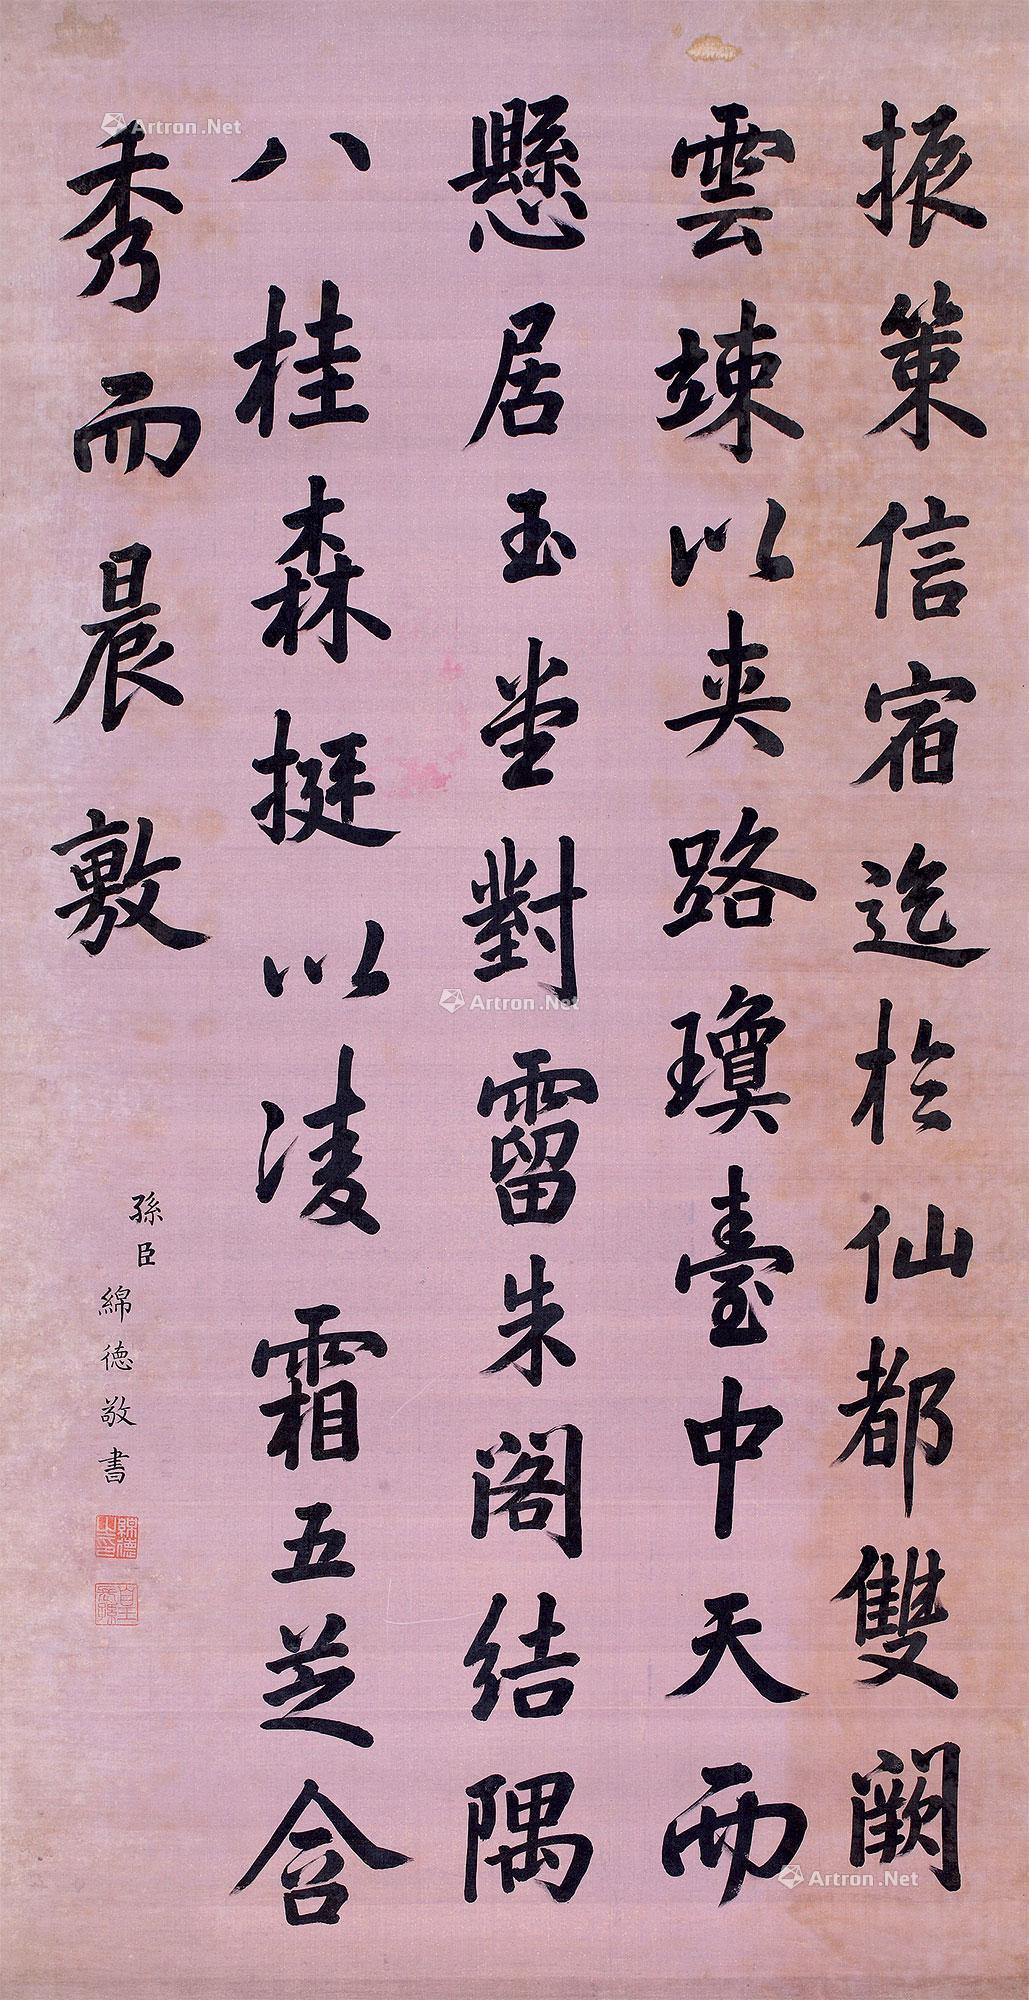 振策信宿迄於仙都雙闕
雲竦以夾路瓊臺中天而
懸居玉堂對霤朱閣結隅
八桂森挺以凌霜五芝含
秀而晨敷
孫臣
綿德敬書
綿德
Artron.Net
Artron.Net
Artron.Net